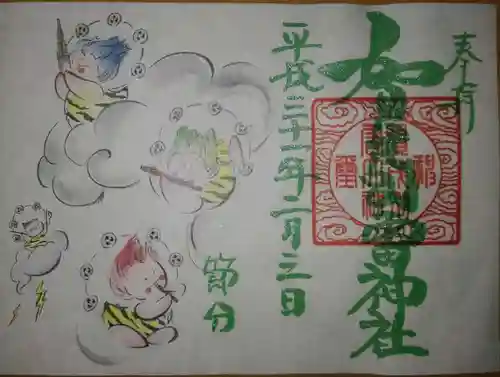 奉拝
賀茂別雷神社
平成三十一年二月三日
節分